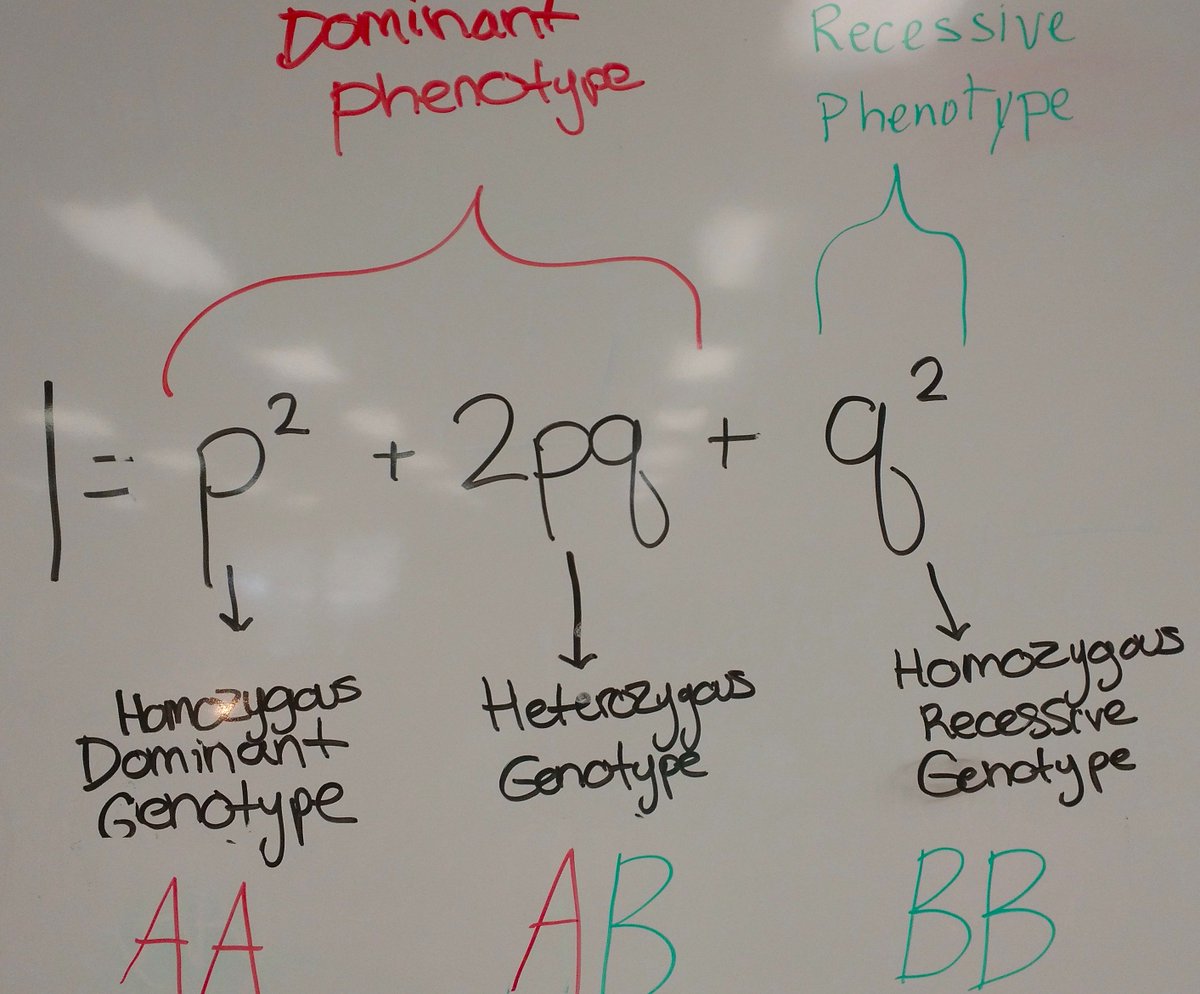 Dominant
phenotype
Recessive
Phenotype
1 = p² + 2pq + q²
Homozygous
Dominant
Genotype
Heterozygous
Genotype
Homozygous
Recessive
Genotype
AA
AB
BB